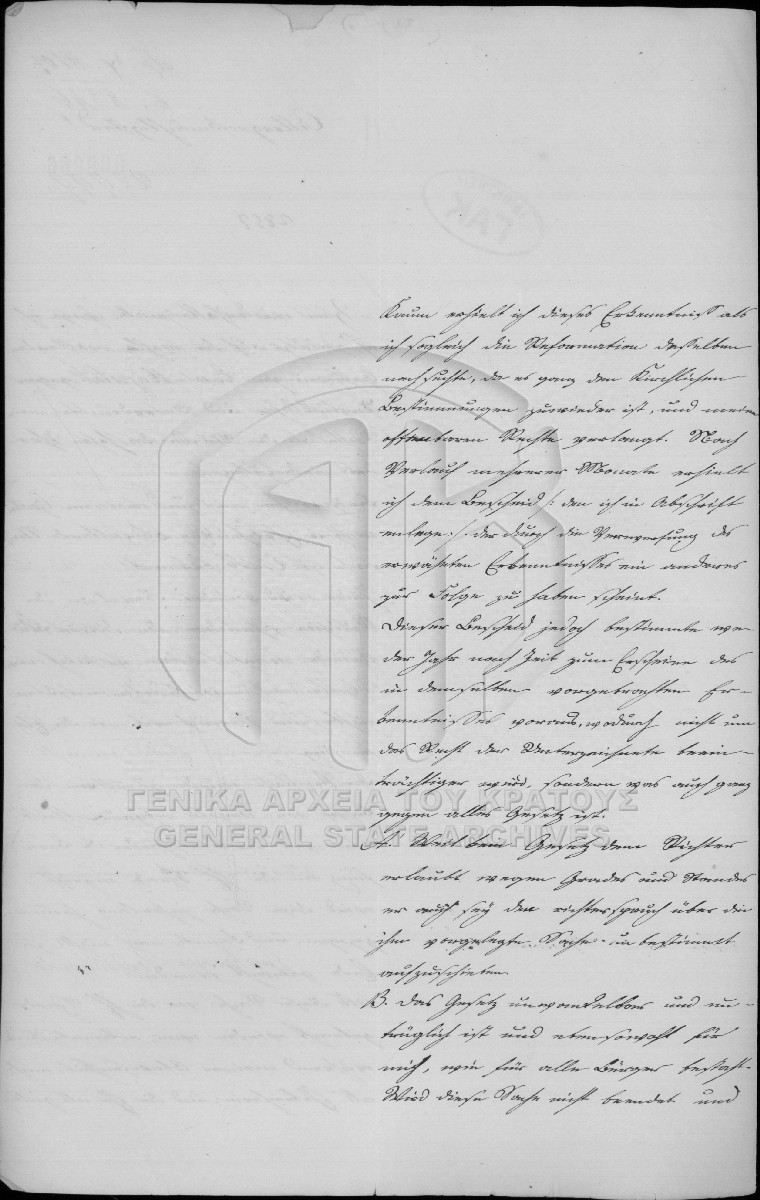 Kaum erhielt ich dieses Erkenntniß als
ich sogleich die Reformation desselben
nachsuchte, da es ganz den Kirchlichen
Bestimmungen zuwieder ist, und meine
offenbaren Rechte verlangt. Nach
Verlauf mehrerer Monate erhielt
ich dem Bescheid /: den ich in Abschrift
anlege :/ der durch die Verwerfung des
erwähten Erkenntnisses ein anderes
zur Folge zu haben scheint.
Dieser Bescheid jedoch bestimmte we-
der Jahr noch Zeit zum Erscheine des
in demselben vorgebrachten Er-
kenntnisses voraus, wodurch nicht nur
das Recht der Unterzeichnete beein-
trächtiget wird, sondern was auch ganz
gegen alles Gesetz ist.
A. Weil kein Gesetz dem Richter
erlaubt wegen Grades und Standes
er auch sey den richterspruch über die
ihm vorgelegte Sache unbestimmt
aufzuschieben.
B. das Gesetz unwandelbar und un-
trüglich ist und ebensowohl für
mich, wie für alle Bürger besteht.
Wird diese Sache nicht beendet und
ΓΕΝΙΚΑ ΑΡΧΕΙΑ ΤΟΥ ΚΡΑΤΟΥΣ
GENERAL STATE ARCHIVES